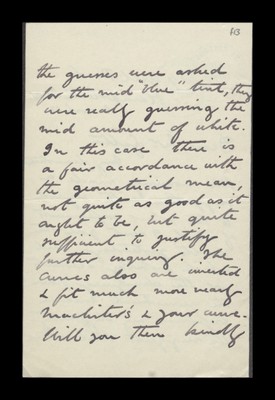 83
the guesses were asked
for the mid "blue" tint, they
were really guessing the
mid amount of white.
In this case there is
a fair accordance with
the geometrical mean,
not quite as good as it
ought to be, but quite
sufficient to justify
further inquiry. The
curves also are inverted
& fit much more nearly
Macalister's & your curve.
Will you then kindly